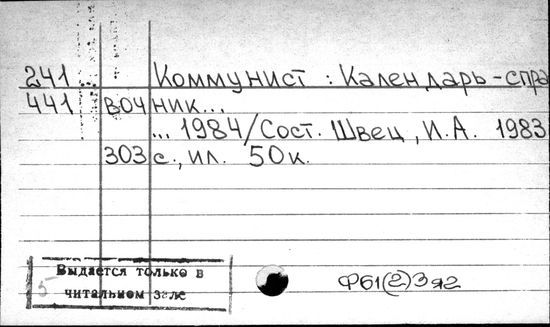 241... Коммунист : Календарь-спра
441 вочник...
... 1984/Сост. Швец, И.А. 1983
303 с., ил. 50к.
Выдается только в
читальном зале
5
Ф61(2)3я2